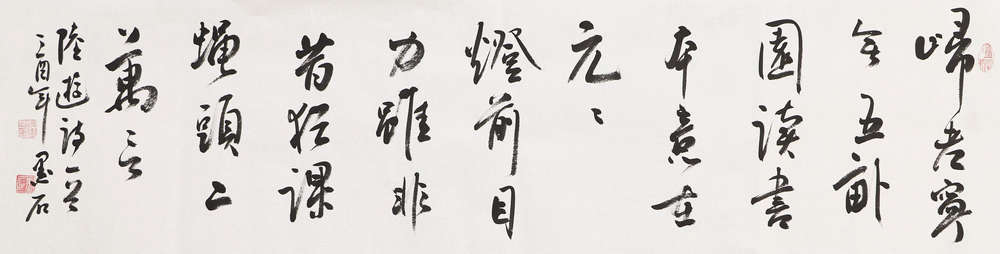 歸老寧
無五畝
園讀書
本意在
元〻
燈前目
力雖非
昔猶課
蠅頭二
萬言
陸遊詩一首
丁酉年 墨石